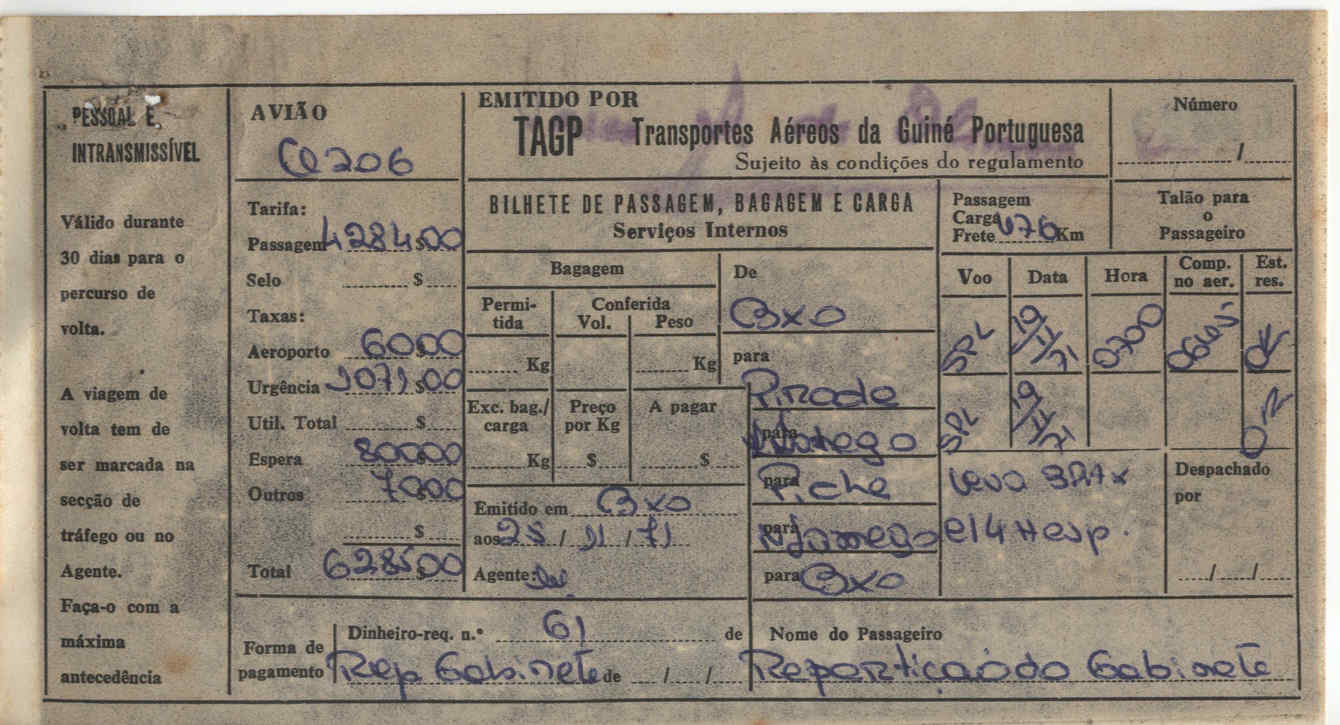 PESSOAL E
INTRANSMISSÍVEL
Válido durante
30 dias para o
percurso de
volta.
A viagem de
volta tem de
ser marcada na
secção de
tráfego ou no
Agente.
Faça-o com a
máxima
antecedência
AVIÃO
Tarifa:
Passagem 4284$00
Selo $
Taxas:
Aeroporto 60$00
Urgência 1071$00
Util. Total $
Espera 800$00
Outros 70$00
$
Total 6285$00
EMITIDO POR
TAGP Transportes Aéreos da Guiné Portuguesa
Sujeito às condições do regulamento
Número
/
BILHETE DE PASSAGEM, BAGAGEM E CARGA
Serviços Internos
Passagem
Carga
Frete 476 Km
Talão para
o
Passageiro
Bagagem
Permi-
tida
Conferida
Vol. Peso
Kg Kg
Exc. bag./
carga
Preço
por Kg
A pagar
Kg $ $
Emitido em BXO
aos 25 / 11 / 71
Agente:
De
BXO
para
Pirada
para
para
Piche
para
para BXO
Voo Data Hora Comp.
no aer. Est.
res.
SPL 19/11/71 0700 OK
SPL 19/11/71
Leva
Despachado
por
/ /
Forma de
pagamento
Dinheiro-req. n.º 61 de
Rep Gabinete de / /
Nome do Passageiro
Repartição do Gabinete